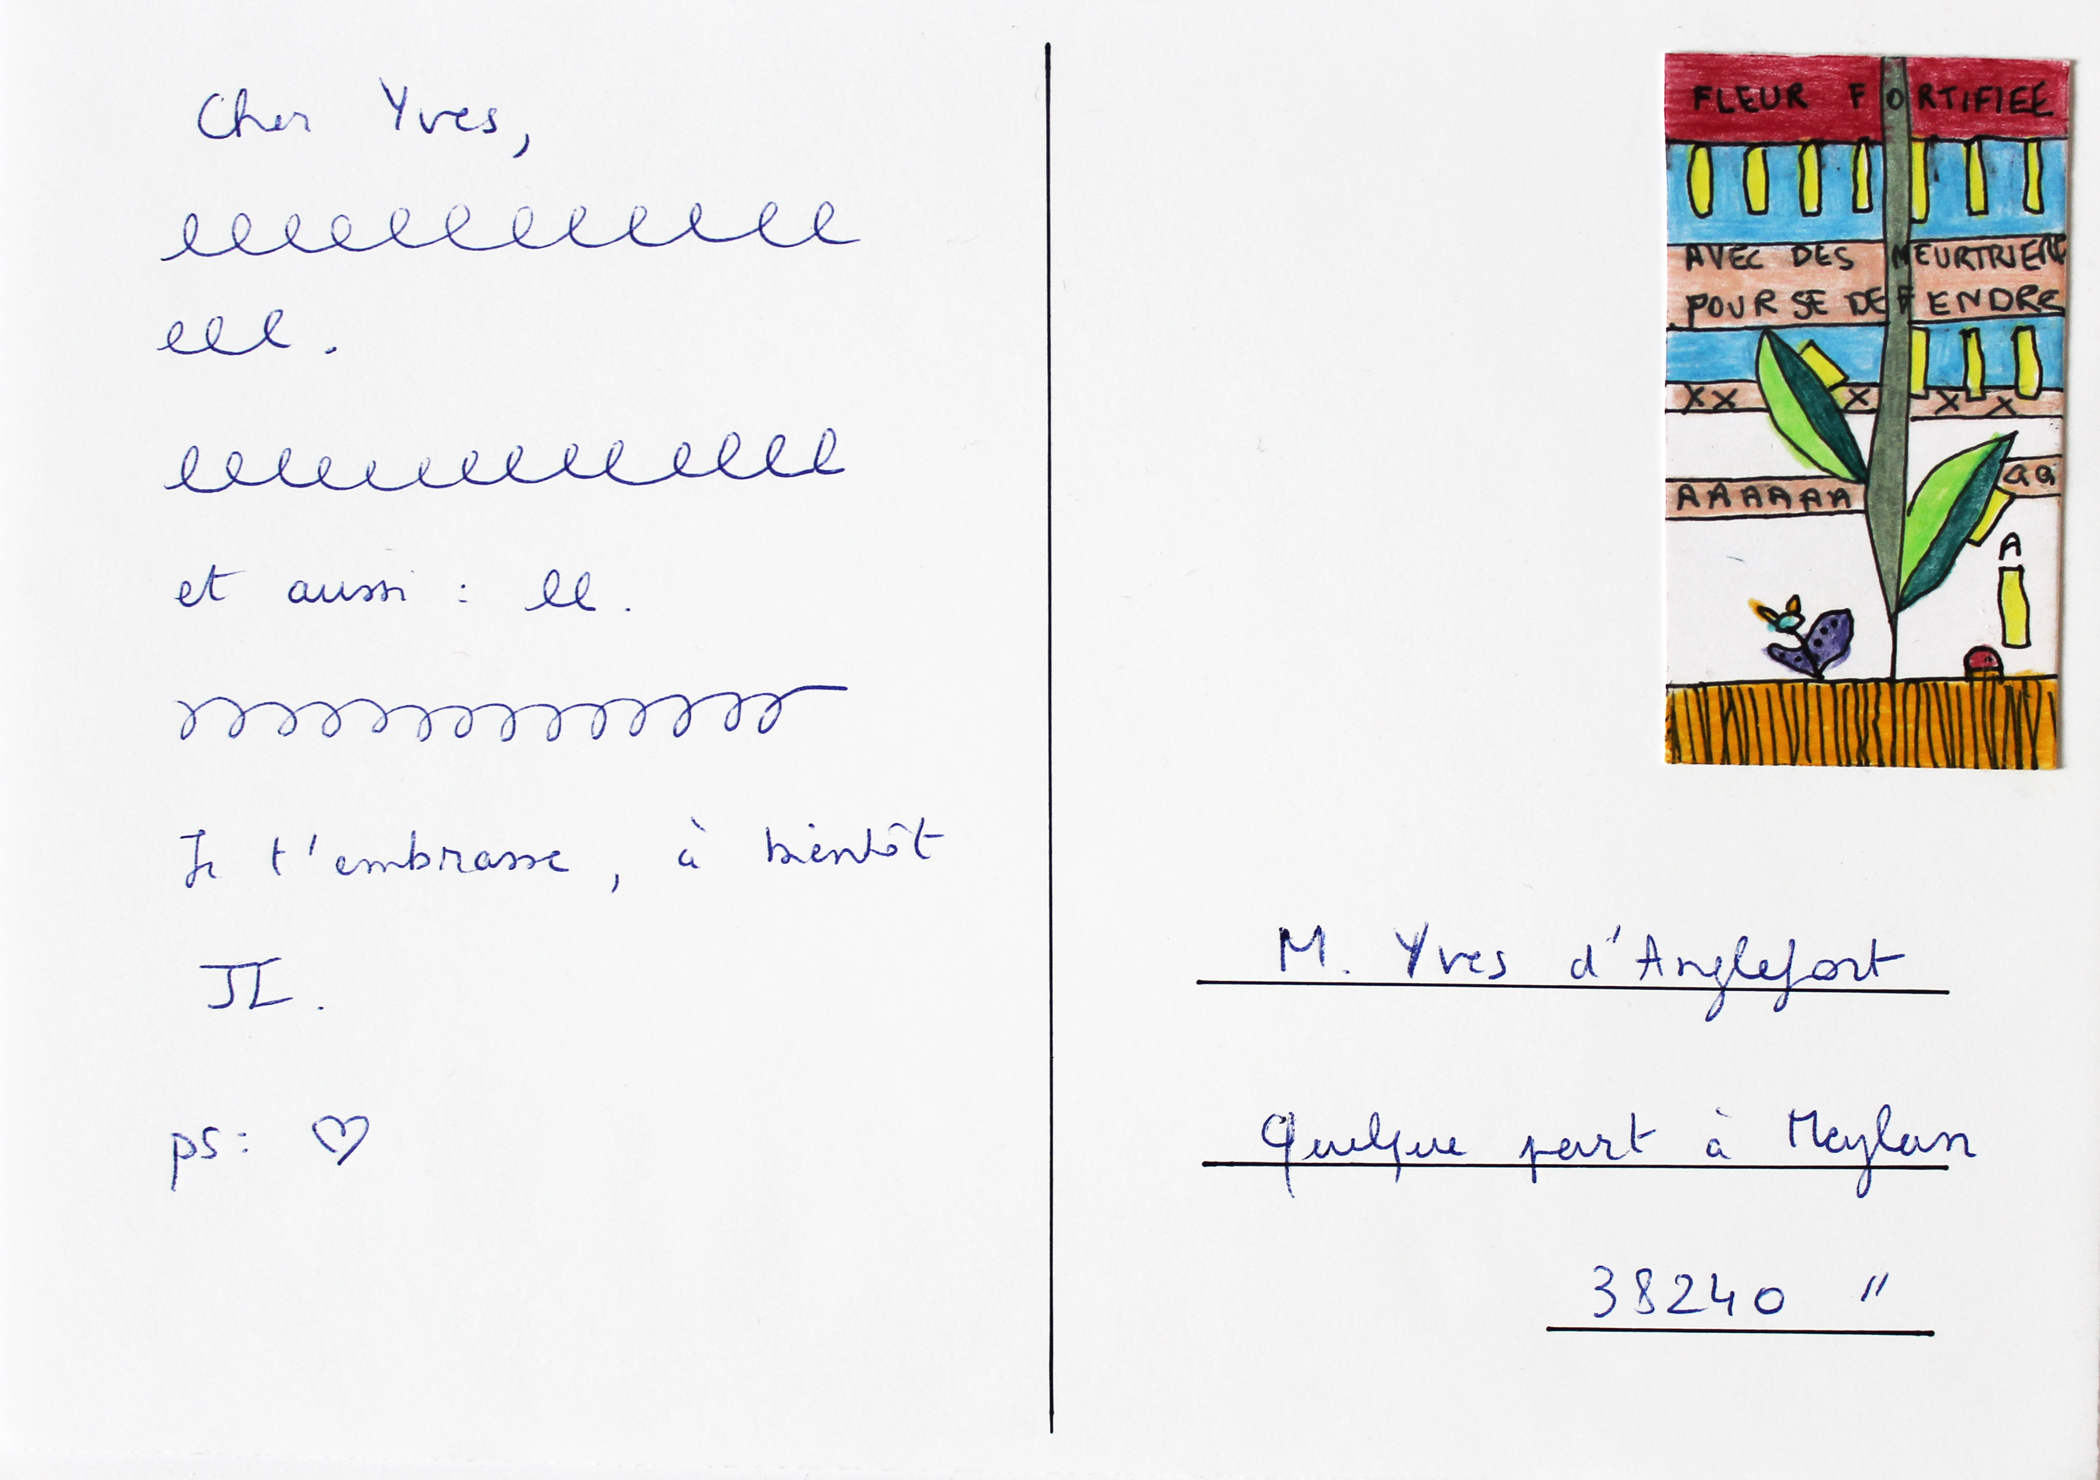 Cher Yves,
elelelelelelelelelelelel
eee.
eeeeeeeeeeeeee
et aussi : ee.
Je t'embrasse, à bientôt
JL.
ps: ♡
FLEUR FORTIFIEE
AVEC DES MEURTRIERE
POUR SE DEFENDRE
XX X X X
AAAAAA aa
A
M. Yves d'Anglefort
Quelque part à Meylan
38240 "